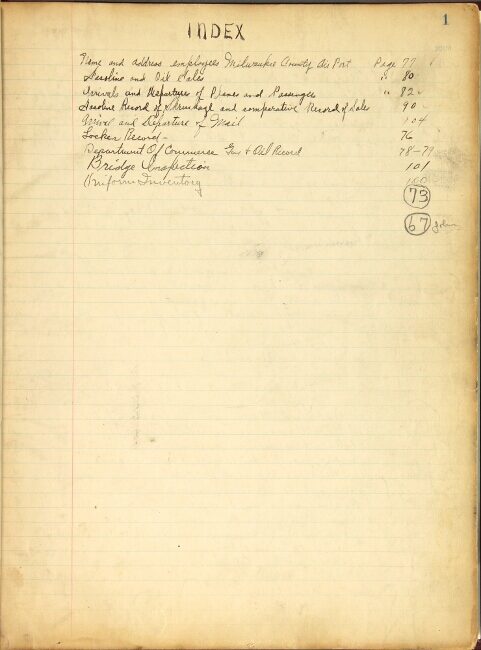 1
INDEX
Name and address employees Milwaukee County Air Port Page 77
Gasoline and Oil Sales " 80
Arrivals and Departures of Planes and Passengers " 82
Gasoline Record of Shrinkage and comparative Record of Sales 90
Arrival and Departure of Mail 104
Locker Record - 76
Department Of Commerce Gas & Oil Record 78-79
Bridge Inspection 101
Uniform Inventory 100
73
67